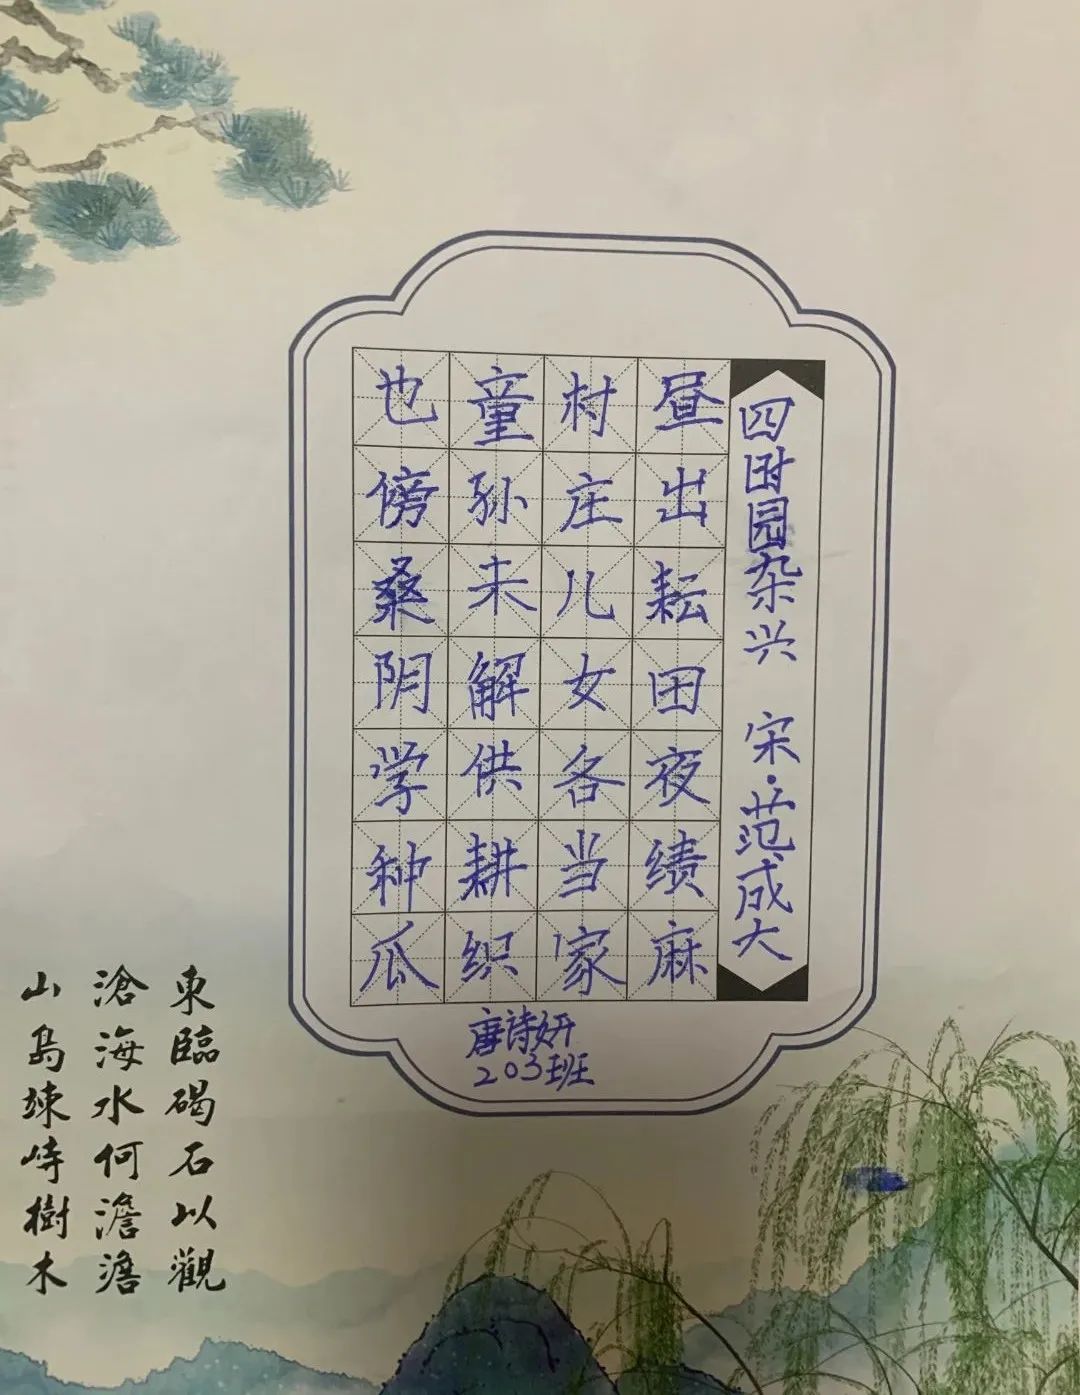 四时园杂兴 宋·范成大
昼出耘田夜绩麻
村庄儿女各当家
童孙未解供耕织
也傍桑阴学种瓜
唐诗妍
203班
東臨碣石以觀
滄海水何澹澹
山島竦峙樹木